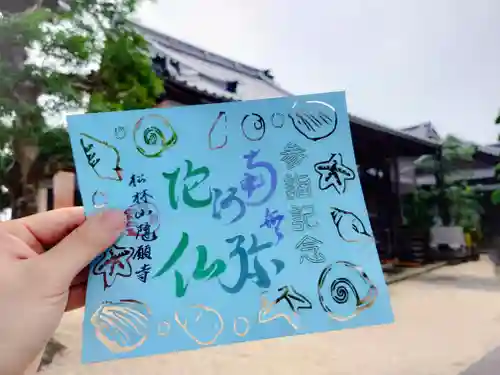 参詣記念
南無
阿弥
陀仏
松林山随願寺